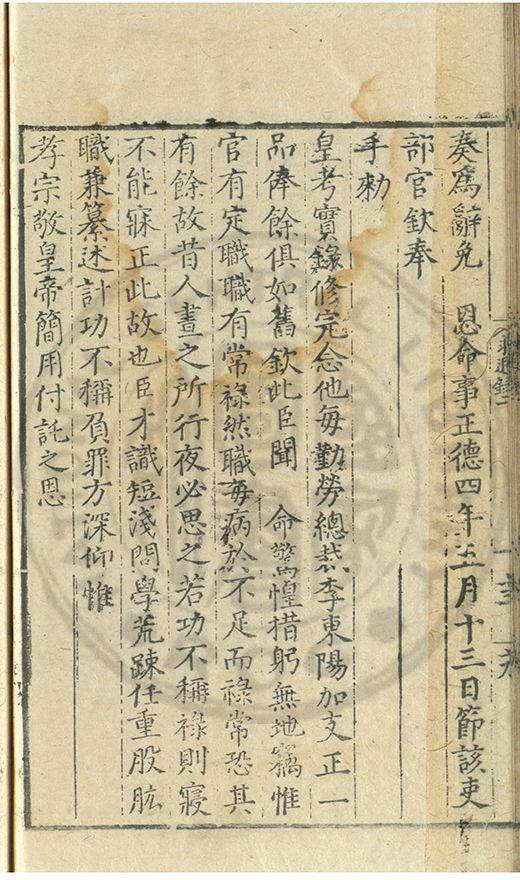 奏爲辭免　恩命事正德四年五月十三日節該吏
部官欽奉
手勑
皇考實錄修完念他每勤勞總裁李東陽加支正一
品俸餘俱如舊欽此臣聞　命驚惶措躬無地竊惟
官有定職職有常祿然職每病於不足而祿常恐其
有餘故昔人晝之所行夜必思之若功不稱祿則寢
不能寐正此故也臣才識短淺問學荒踈任重股肱
職兼纂述計功不稱負罪方深仰惟
孝宗敬皇帝簡用付託之恩